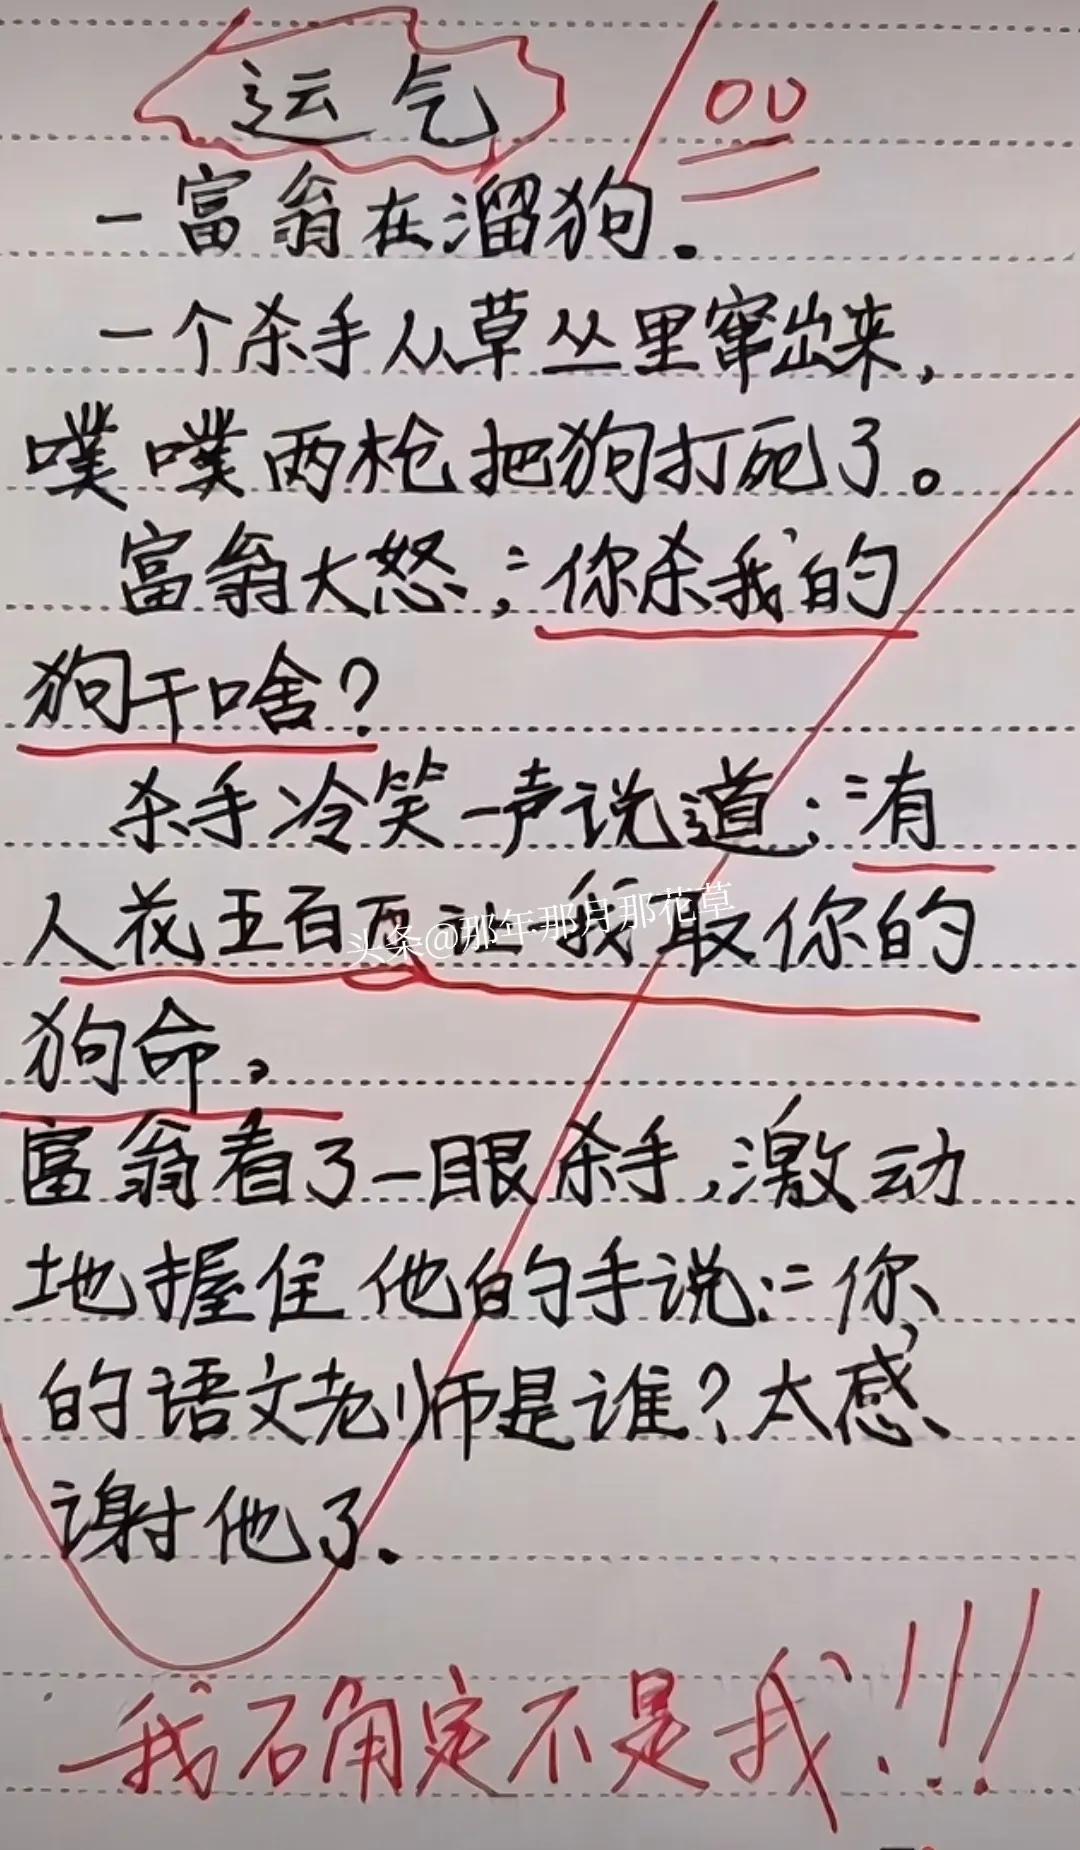 运气
100
一富翁在溜狗.
一个杀手从草丛里窜出来,
噗噗两枪把狗打死了。
富翁大怒:"你杀我的
狗干啥?
杀手冷笑一声说道:"有
人花五百 让我取你的
头条@那年那月那花草
狗命。
富翁看了一眼杀手,激动
地握住他的手说:"你
的语文老师是谁?太感
谢他了.
我确定不是我!!!